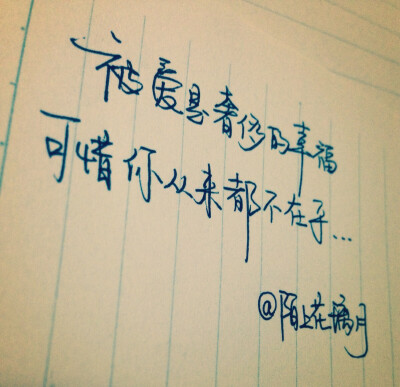 被爱是奢侈的幸福
可惜你从来都不在乎...
@陌上花璃月